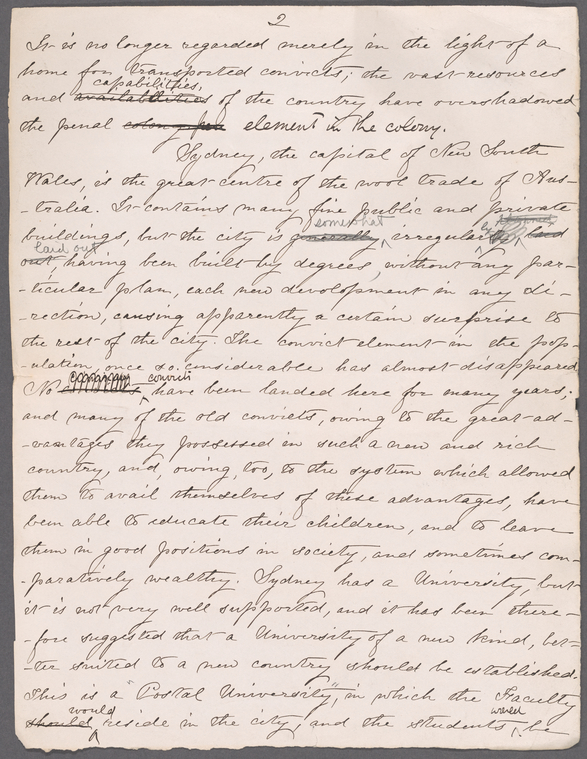 2
It is no longer regarded merely in the light of a
home for transported convicts; the vast resources
capabilities,
and availabilities of the country have overshadowed
the penal colony element in the colony.
Sydney, the capital of New South
Wales, is the great centre of the wool trade of Aus-
-tralia. It contains many fine public and private
somewhat
buildings, but the city is generally irregularly laid
laid out
out, having been built by degrees, without any par-
-ticular plan, each new development in any di-
-rection, causing apparently a certain surprise to
the rest of the city. The convict element in the pop-
-ulation, once so considerable has almost disappeared
convicts
No have been landed here for many years;
and many of the old convicts, owing to the great ad-
-vantages they possessed in such a new and rich
country, and, owing, too, to the system which allowed
them to avail themselves of these advantages, have
been able to educate their children, and to leave
them in good positions in society, and sometimes com-
-paratively wealthy. Sydney has a University, but
it is not very well supported, and it has been there-
-fore suggested that a University of a new kind, bet-
-ter suited to a new country should be established.
This is a "Postal University", in which the Faculty
would would
should reside in the city, and the students, be